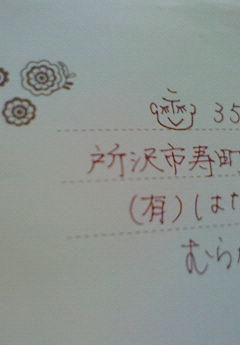 〒35
所沢市寿町
(有)はな
むら